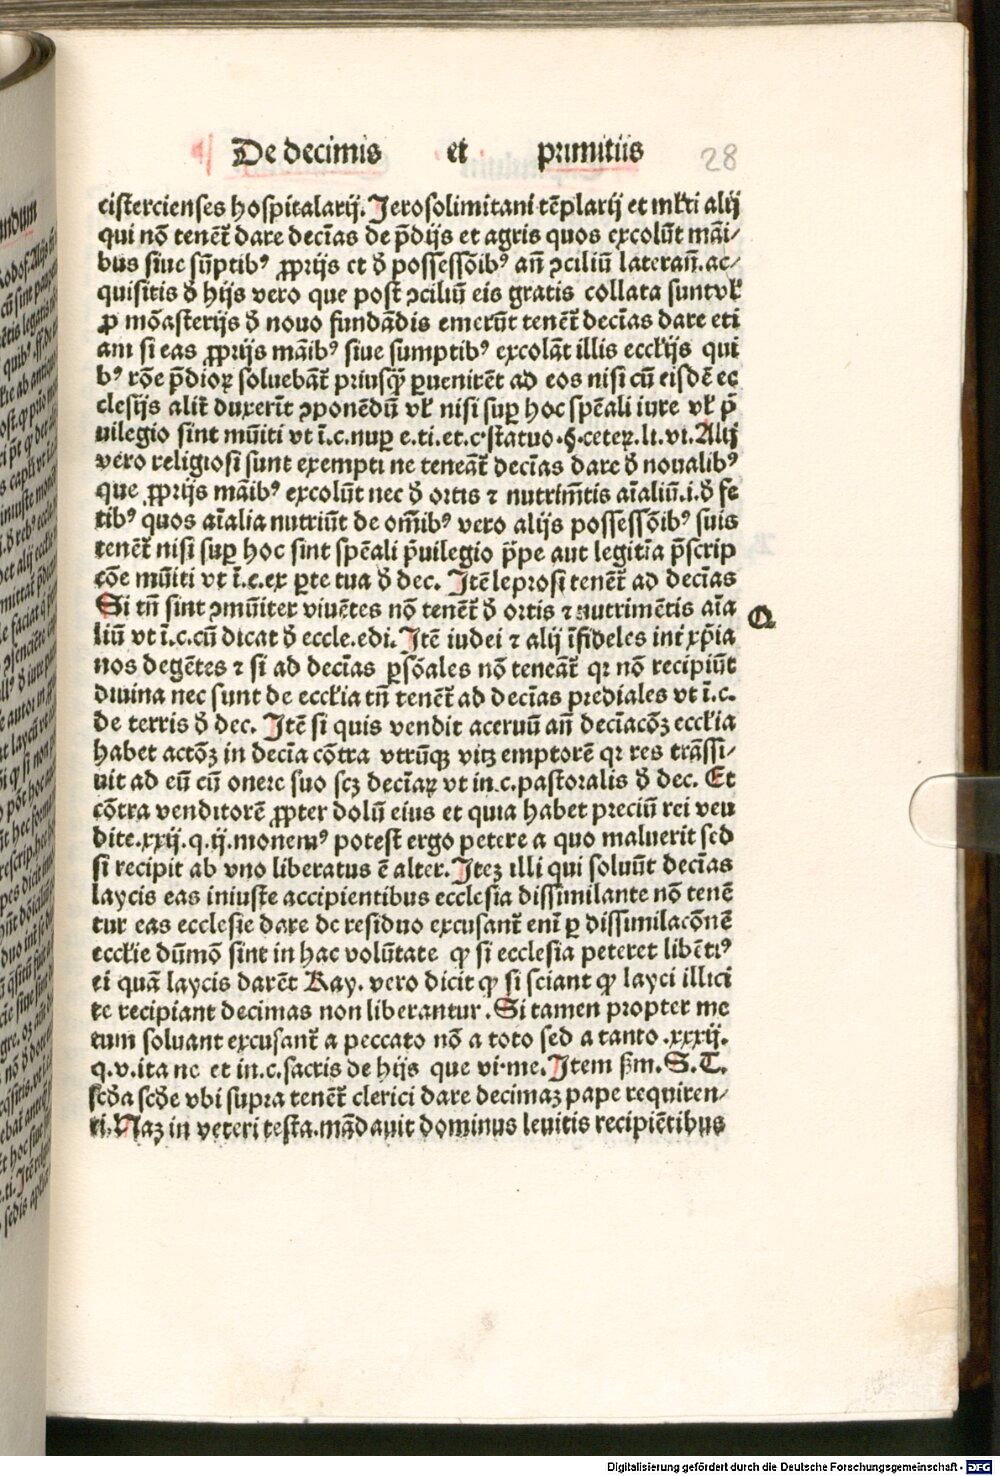 De decimis et primitiis 28
cistercienses hospitalarij. Jerosolimitani tēplarij et mlti alij
qui nō tenēt᷑ dare decīas de p̄dijs et agris quos excolūt māi/
bus siue sūptibꝰ ꝓprijs et ð possessōibꝰ an̄ ꝯciliū lateran̄. ac/
quisitis ð hijs vero que post ꝯciliū eis gratis collata sunt vl̓
ꝓ mōasterijs ð nouo fundādis emerūt tenēt᷑ decīas dare eti
am si eas ꝓprijs māibꝰ siue sumptibꝰ excolāt illis eccl̓ijs qui
bꝰ rōe p̄dioꝝ soluebāt᷑ priusq̄ꝫ ꝑuenirēt ad eos nisi cū eisdē ec
clesijs alit̓ duxerīt ꝯponēdū vl̓ nisi suꝑ hoc spēali iure vl̓ p̄
uilegio sint mūiti vt ī.c.nuꝑ e.ti.et.c.statuo.§.ceteꝝ.li.vi. Alij
vero religiosi sunt exempti ne teneāt᷑ decīas dare ð noualibꝰ
que ꝓprijs māibꝰ excolūt nec ð ortis ⁊ nutrim̄tis aīaliū.i.ð fe
tibꝰ quos aīalia nutriūt de om̄ibꝰ vero alijs possessōibꝰ suis
tenēt᷑ nisi suꝑ hoc sint spēali p̄uilegio p̄pe aut legitīa p̄scrip
cōe mūiti vt ī.c.ex ꝑte tua ð dec. Jtē leprosi tenēt᷑ ad decīas
Si tn̄ sint ꝯmūiter viuētes nō tenēt᷑ ð ortis ⁊ nutrimētis aīa Q
liū vt ī.c.cū dicat ð eccle.edi. Jtē iudei ⁊ alij īfideles int̓ xp̄ia
nos degētes ⁊ si ad decīas ꝑsōales nō teneāt᷑ qꝛ nō recipiūt
diuina nec sunt de eccl̓ia tn̄ tenēt᷑ ad decīas prediales vt ī.c.
de terris ð dec. Jtē si quis vendit aceruū an̄ decīacōꝫ eccl̓ia
habet actōꝫ in decīa cōtra vtrūqꝫ vitꝫ emptorē qꝛ res trāssi/
uit ad eū cū onere suo scꝫ decīaꝝ vt in.c.pastoralis ð dec. Et
cōtra venditorē ꝓpter dolū eius et quia habet preciū rei veu
dite.xxij.q.ij.monemꝰ potest ergo petere a quo maluerit sed
si recipit ab vno liberatus ē alter. Jteꝫ illi qui soluūt decīas
laycis eas iniuste accipientibus ecclesia dissimilante nō tenē
tur eas ecclesie dare de residuo excusant᷑ eni᷑ ꝑ dissimilacōnē
eccl̓ie dūmō sint in hac volūtate ꝙ si ecclesia peteret libētiꝰ
ei quā laycis darēt Ray. vero dicit ꝙ si sciant ꝙ layci illici
te recipiant decimas non liberantur. Si tamen propter me
tum soluant excusant᷑ a peccato nō a toto sed a tanto.xxxij.
q.v.ita ne et in.c.sacris de hijs que vi.me. Jtem ẜm.S.T.
scð̓a scð̓e vbi supra tenēt᷑ clerici dare decimaꝫ pape requiren/
ti. Naꝫ in veteri testa.mādauit dominus leuitis recipiētibus
Digitalisierung gefördert durch die Deutsche Forschungsgemeinschaft - DFG